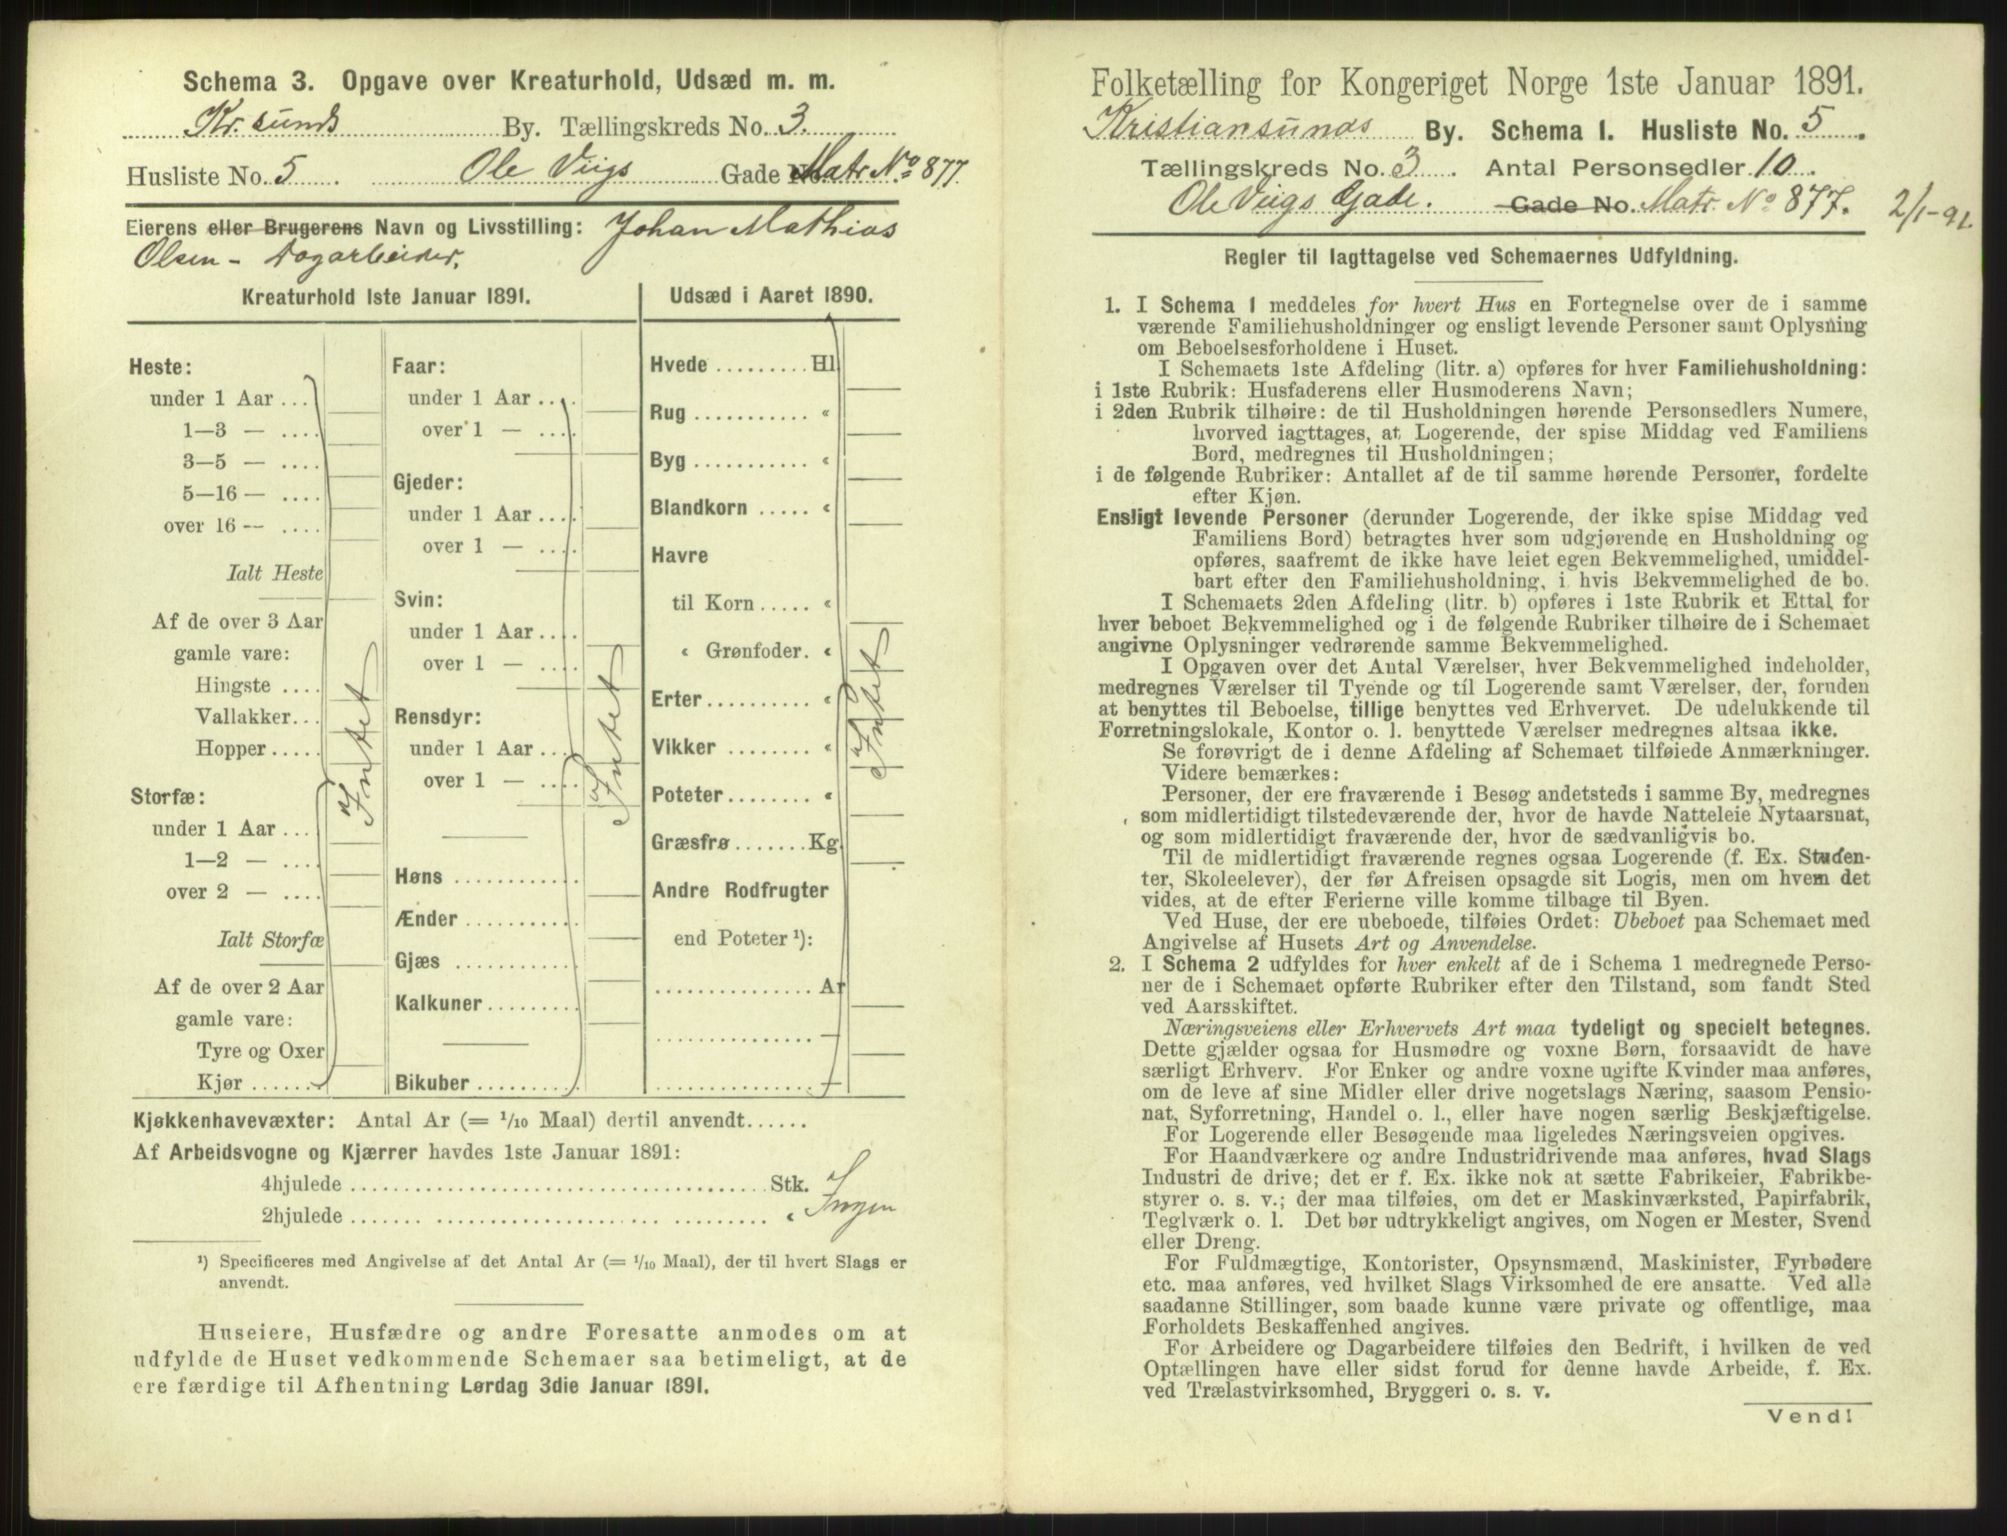 Schema 3. Opgave over Kreaturhold, Udsæd m. m.
Kr.sunds By. Tællingskreds No. 3.
Husliste No. 5 . Ole Viigs Gade No. Matr No 877.
Eierens eller Brugerens Navn og Livsstilling: Johan Mathias
Olsen - Dagarbeider.
Kreaturhold 1ste Januar 1891.
Heste:
under 1 Aar ...
1—3 — ....
3—5 — ....
5—16 — ....
over 16 — ....
Ialt Heste
Af de over 3 Aar
gamle vare:
Hingste ....
Vallakker...
Hopper.....
Storfæ:
under 1 Aar ...
1—2 — ....
over 2 — ....
Ialt Storfæ
Af de over 2 Aar
gamle vare:
Tyre og Oxer
Kjør ......
Intet
Faar:
under 1 Aar ....
over 1 — ....
Gjeder:
under 1 Aar ....
over 1 — ....
Svin:
under 1 Aar ....
over 1 — ....
Rensdyr:
under 1 Aar ....
over 1 — ....
Høns ...........
Ænder ..........
Gjæs ...........
Kalkuner ........
Bikuber .........
Intet
Udsæd i Aaret 1890.
Hvede ......... Hl.
Rug ........... «
Byg ........... «
Blandkorn ..... «
Havre
til Korn ..... «
« Grønfoder. «
Erter .......... «
Vikker ......... «
Poteter ........ «
Græsfrø ....... Kg.
Andre Rodfrugter
end Poteter ¹):
............... Ar
............... —
............... —
Intet
Kjøkkenhavevæxter: Antal Ar (= 1/10 Maal) dertil anvendt......
Af Arbeidsvogne og Kjærrer havdes 1ste Januar 1891:
4hjulede ........................................ Stk.
2hjulede ........................................ «
Ingen
¹) Specificeres med Angivelse af det Antal Ar (= 1/10 Maal), der til hvert Slags er
anvendt.
Huseiere, Husfædre og andre Foresatte anmodes om at
udfylde de Huset vedkommende Schemaer saa betimeligt, at de
ere færdige til Afhentning Lørdag 3die Januar 1891.
Folketælling for Kongeriget Norge 1ste Januar 1891.
Kristiansunds By. Schema 1. Husliste No. 5 .
Tællingskreds No. 3 . Antal Personsedler 10 .
Ole Viigs Gade. Gade No. Matr. No 877. 2/1-91.
Regler til Iagttagelse ved Schemaernes Udfyldning.
1. I Schema 1 meddeles for hvert Hus en Fortegnelse over de i samme
værende Familiehusholdninger og ensligt levende Personer samt Oplysning
om Beboelsesforholdene i Huset.
I Schemaets 1ste Afdeling (litr. a) opføres for hver Familiehusholdning:
i 1ste Rubrik: Husfaderens eller Husmoderens Navn;
i 2den Rubrik tilhøire: de til Husholdningen hørende Personsedlers Numere,
hvorved iagttages, at Logerende, der spise Middag ved Familiens
Bord, medregnes til Husholdningen;
i de følgende Rubriker: Antallet af de til samme hørende Personer, fordelte
efter Kjøn.
Ensligt levende Personer (derunder Logerende, der ikke spise Middag ved
Familiens Bord) betragtes hver som udgjørende en Husholdning og
opføres, saafremt de ikke have leiet egen Bekvemmelighed, umiddel-
bart efter den Familiehusholdning, i hvis Bekvemmelighed de bo.
I Schemaets 2den Afdeling (litr. b) opføres i 1ste Rubrik et Ettal for
hver beboet Bekvemmelighed og i de følgende Rubriker tilhøire de i Schemaet
angivne Oplysninger vedrørende samme Bekvemmelighed.
I Opgaven over det Antal Værelser, hver Bekvemmelighed indeholder,
medregnes Værelser til Tyende og til Logerende samt Værelser, der, foruden
at benyttes til Beboelse, tillige benyttes ved Erhvervet. De udelukkende til
Forretningslokale, Kontor o. l. benyttede Værelser medregnes altsaa ikke.
Se forøvrigt de i denne Afdeling af Schemaet tilføiede Anmærkninger.
Videre bemærkes:
Personer, der ere fraværende i Besøg andetsteds i samme By, medregnes
som midlertidigt tilstedeværende der, hvor de havde Natteleie Nytaarsnat,
og som midlertidigt fraværende der, hvor de sædvanligvis bo.
Til de midlertidigt fraværende regnes ogsaa Logerende (f. Ex. Studen-
ter, Skoleelever), der før Afreisen opsagde sit Logis, men om hvem det
vides, at de efter Ferierne ville komme tilbage til Byen.
Ved Huse, der ere ubeboede, tilføies Ordet: Ubeboet paa Schemaet med
Angivelse af Husets Art og Anvendelse.
2. I Schema 2 udfyldes for hver enkelt af de i Schema 1 medregnede Perso-
ner de i Schemaet opførte Rubriker efter den Tilstand, som fandt Sted
ved Aarsskiftet.
Næringsveiens eller Erhvervets Art maa tydeligt og specielt betegnes.
Dette gjælder ogsaa for Husmødre og voxne Børn, forsaavidt de have
særligt Erhverv. For Enker og andre voxne ugifte Kvinder maa anføres,
om de leve af sine Midler eller drive nogetslags Næring, saasom Pensio-
nat, Syforretning, Handel o. l., eller have nogen særlig Beskjæftigelse.
For Logerende eller Besøgende maa ligeledes Næringsveien opgives.
For Haandværkere og andre Industridrivende maa anføres, hvad Slags
Industri de drive; det er f. Ex. ikke nok at sætte Fabrikeier, Fabrikbe-
styrer o. s. v.; der maa tilføies, om det er Maskinværksted, Papirfabrik,
Teglværk o. l. Det bør udtrykkeligt angives, om Nogen er Mester, Svend
eller Dreng.
For Fuldmægtige, Kontorister, Opsynsmænd, Maskinister, Fyrbødere
etc. maa anføres, ved hvilket Slags Virksomhed de ere ansatte. Ved alle
saadanne Stillinger, som baade kunne være private og offentlige, maa
Forholdets Beskaffenhed angives.
For Arbeidere og Dagarbeidere tilføies den Bedrift, i hvilken de ved
Optællingen have eller sidst forud for denne havde Arbeide, f. Ex.
ved Trælastvirksomhed, Bryggeri o. s. v.
Vend!